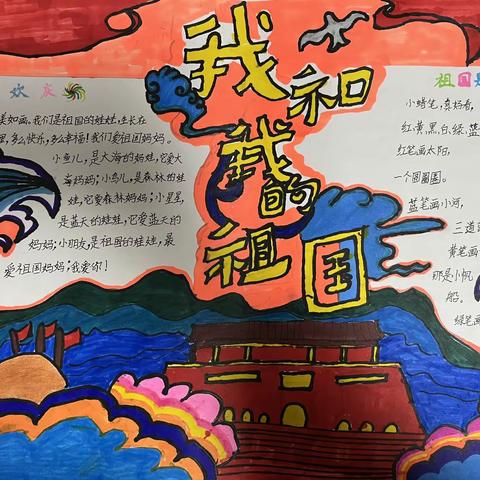 我和
我的
祖国
欢庆
美如画。我们是祖国的娃娃,生长在
里,多么快乐,多么幸福!我们爱祖国妈妈。
小鱼儿,是大海的娃娃,它爱大
海妈妈;小鸟儿,是森林的娃
娃,它爱森林妈妈;小星星,
是蓝天的娃娃,它爱蓝天的
妈妈;小朋友,是祖国的娃娃,最
爱祖国妈妈;我爱你!
祖国是
小蜡笔,真好看,
红,黄,黑,白,绿,蓝
红笔画太阳,
一个圆圆圈。
蓝笔画小河,
三道
黄笔画
那是小帆
船。
绿笔画